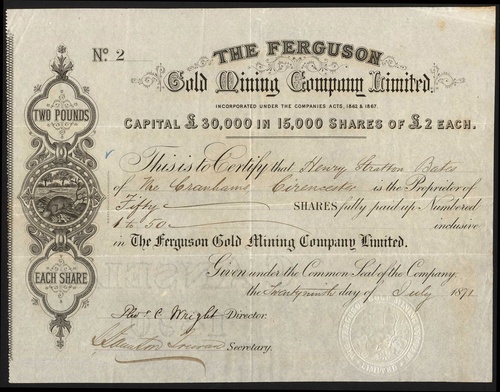 No. 2
THE FERGUSON
Gold Mining Company Limited.
INCORPORATED UNDER THE COMPANIES ACTS, 1862 & 1867.
CAPITAL £30,000 IN 15,000 SHARES OF £2 EACH.
TWO POUNDS
This is to Certify that Henry Stratton Bates
of The Cranhams Cirencester is the Proprietor of
Fifty SHARES fully paid up Numbered
1 to 50 inclusive
in The Ferguson Gold Mining Company Limited.
EACH SHARE
Given under the Common Seal of the Company.
the Twenty ninth day of July 1871
Thos. C. Wright Director.
Secretary.